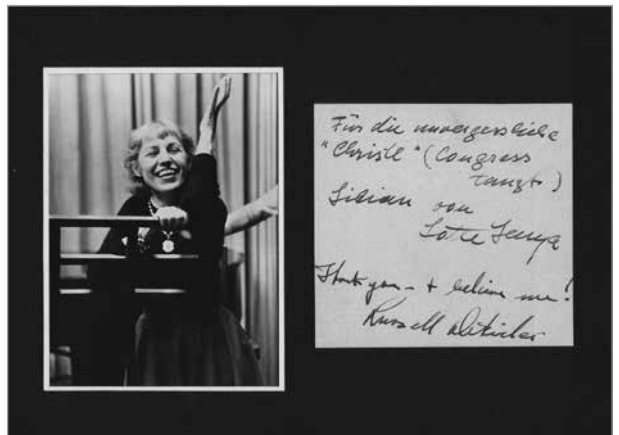 Für die unvergessliche
"Christl" (Congress
tanzt.)
Lilian von
Lotte Lenya
Thank you - & believe me!
Russell